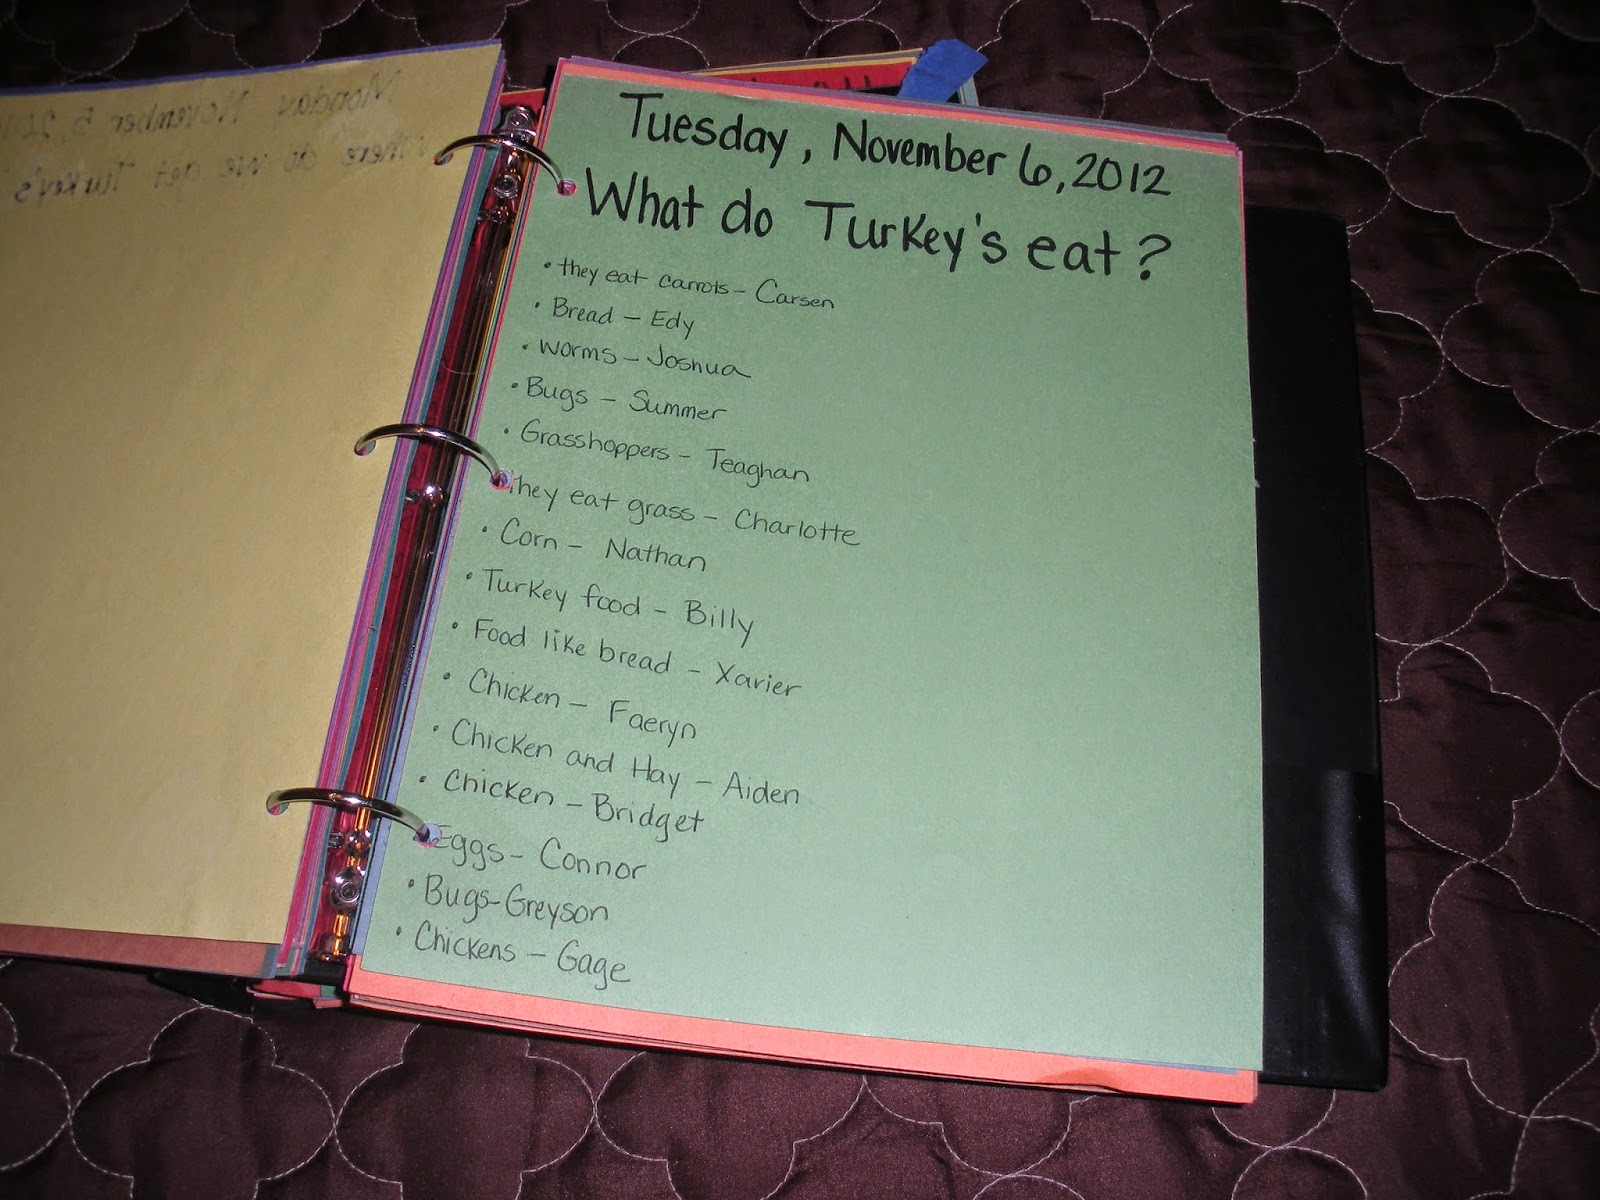 Monday November 5, 201
Where do we get Turkey's
Tuesday, November 6, 2012
What do Turkey's eat?
• they eat carrots - Carsen
• Bread - Edy
• Worms - Joshua
• Bugs - Summer
• Grasshoppers - Teaghan
They eat grass - Charlotte
• Corn - Nathan
• Turkey food - Billy
• Food like bread - Xavier
• Chicken - Faeryn
• Chicken and Hay - Aiden
• Chicken - Bridget
Eggs - Connor
• Bugs-Greyson
• Chickens - Gage